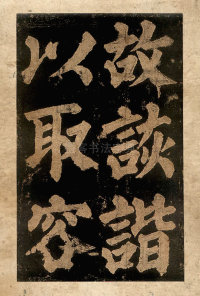 故談諧
以取容